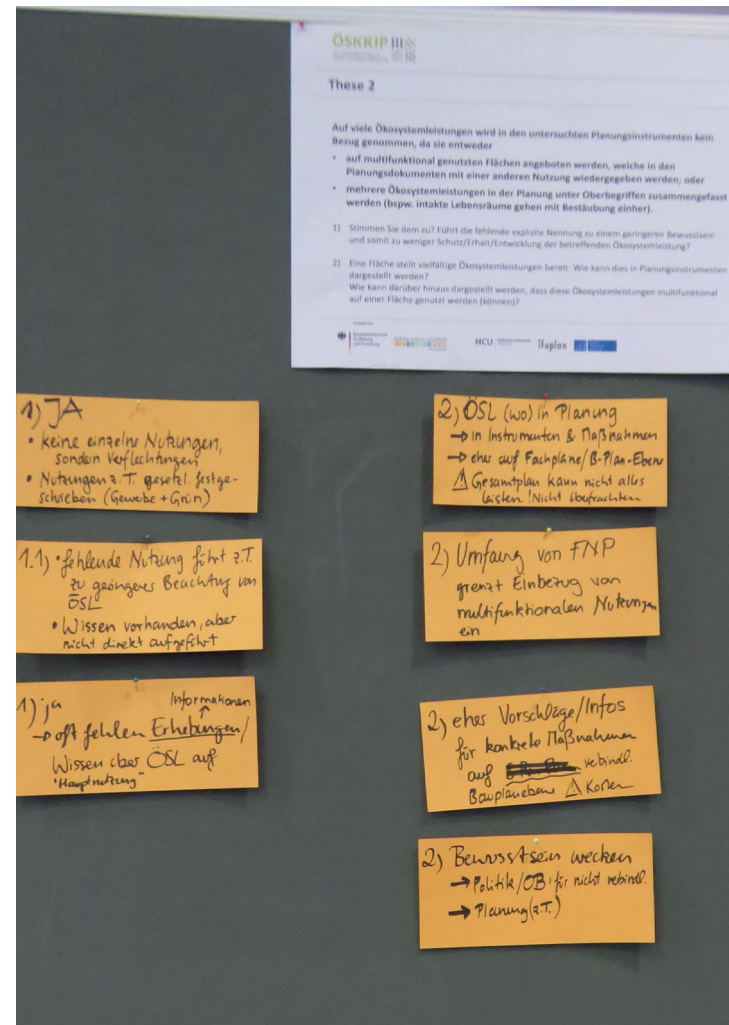 ÖSKKIP
These 2
Auf viele Ökosystemleistungen wird in den untersuchten Planungsinstrumenten kein
Bezug genommen, da sie entweder
• auf multifunktional genutzten Flächen angeboten werden, welche in den
Planungsdokumenten mit einer anderen Nutzung wiedergegeben werden; oder
• mehrere Ökosystemleistungen in der Planung unter Oberbegriffen zusammengefasst
werden (bspw. intakte Lebensräume gehen mit Bestäubung einher).
1) Stimmen Sie dem zu? Führt die fehlende explizite Nennung zu einem geringeren Bewusstsein
und somit zu weniger Schutz/Erhalt/Entwicklung der betreffenden Ökosystemleistung?
2) Eine Fläche stellt vielfältige Ökosystemleistungen bereit: Wie kann dies in Planungsinstrumenten
dargestellt werden?
Wie kann darüber hinaus dargestellt werden, dass diese Ökosystemleistungen multifunktional
auf einer Fläche genutzt werden (können)?
HCU
ifuplan
1) JA
• keine einzelne Nutzungen,
sondern Verflechtungen
• Nutzungen z.T. gesetzl. festge-
schrieben (Gewebe + Grün)
1.1) • fehlende Nutzung führt z.T.
zu geringeres Beachtung von
ÖSL
• Wissen vorhanden, aber
nicht direkt aufgeführt
1) ja
Informationen
→ oft fehlen Erhebungen/
Wissen über ÖSL auf
"Hauptnutzung"
2) ÖSL (wo) in Planung
→ in Instrumenten & Maßnahmen
→ eher auf Fachpläne/B-Plan-Ebene
⚠ Gesamtplan kann nicht alles
leisten! Nicht überfrachten
2) Umfang von FNP
grenzt Einbezug von
multifunktionalen Nutzungen
ein
2) eher Vorschläge/Infos
für konkrete Maßnahmen
auf verbindl.
Bauplanebene ⚠ Kosten
2) Bewusstsein wecken
→ Politik/OB: für nicht verbindl.
→ Planung (z.T.)